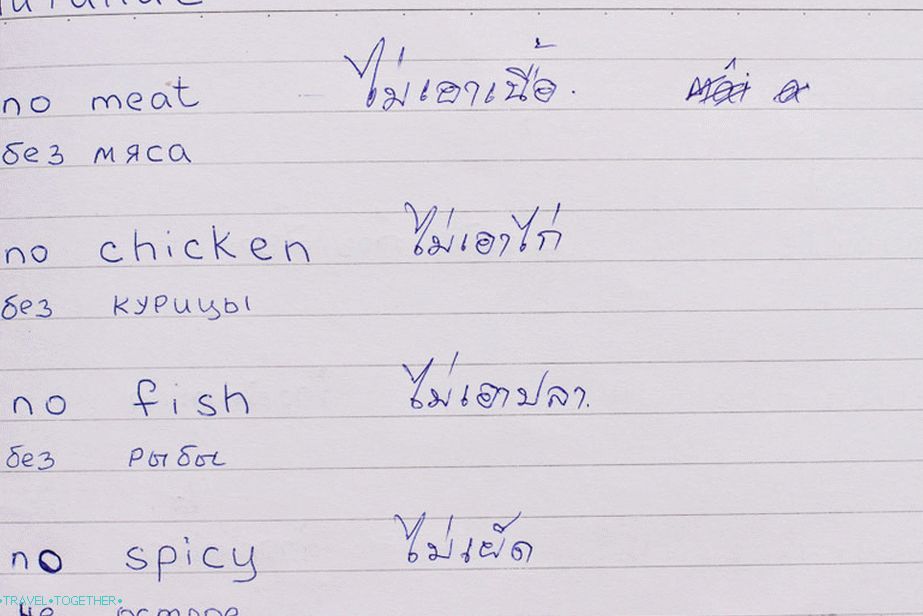 no meat ไม่เอาเนื้อ.
без мяса
no chicken ไม่เอาไก่
без курицы
no fish ไม่เอาปลา.
без рыбы
no spicy ไม่เผ็ด
не
•TRAVEL•TOGETHER•